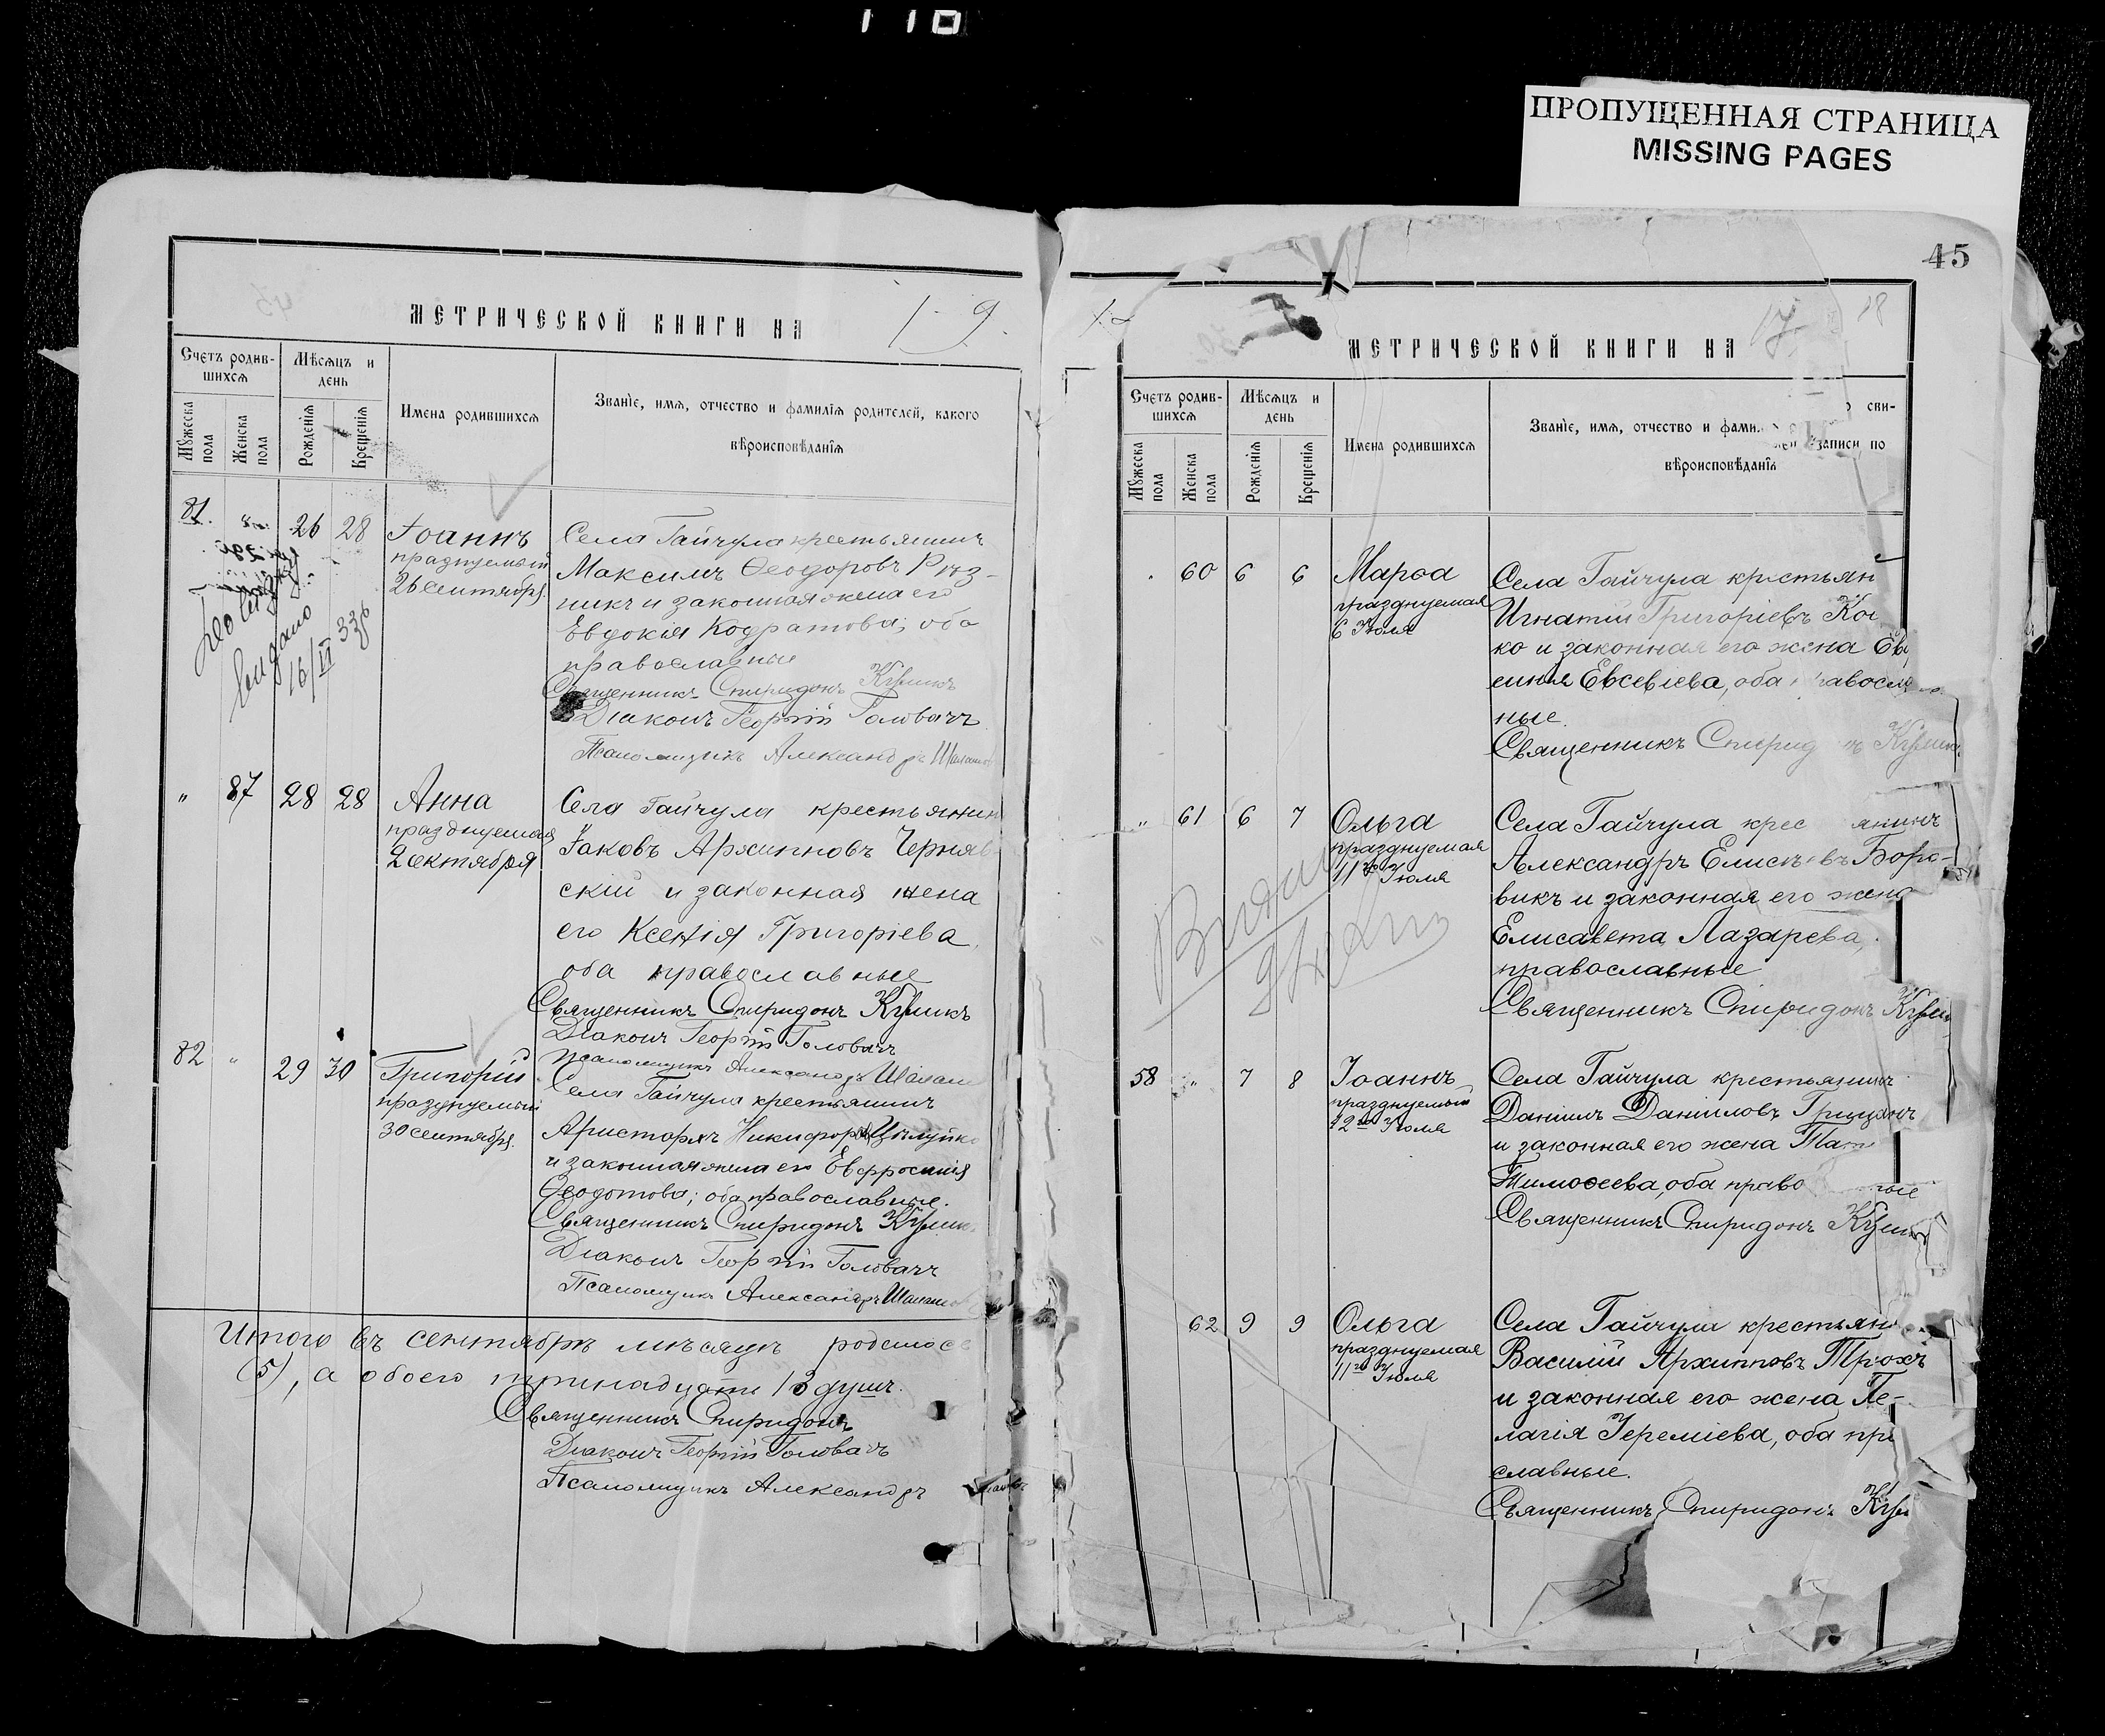 110
ПРОПУЩЕННАЯ СТРАНИЦА
MISSING PAGES
МЕТРИЧЕСКОЙ КНИГИ НА
1 9
Счетъ родив-
шихся
Мѣсяцъ и
день
Мужеска
пола
Женска
пола
Рожденія
Крещенія
Имена родившихся
Званіе, имя, отчество и фамилія родителей, какого
вѣроисповѣданія
81. " 26 28 Іоаннъ
празнуемый
26 сентября.
Села Гайчула крестьянинъ
Максимъ Ѳеодоровъ Рѣз-
никъ и законная жена его
Евдокія Кодратова; оба
православные
Священникъ Спиридонъ Куликъ
Діаконъ Георгій Головачъ
Псаломщикъ Александръ
16/IV 33
" 87 28 28 Анна
празднуемая
2 октября
Села Гайчула крестьянин
Іаковъ Архиповъ Черняв
скій и законная жена
его Ксенія Григоріева
оба православные
Священникъ Спиридонъ Куликъ
Діаконъ Георгій Головачъ
Псаломщикъ Александръ
82 " 29 30 Григорій
празднуемый
30 сентября.
Села Гайчула крестьянинъ
Аристархъ Никифоровъ
и законная жена его Евфросинія
Ѳеодотова; оба православные.
Священникъ Спиридонъ Кулик
Діаконъ Георгій Головачъ
Псаломщикъ Александръ
Итого въ сентябрѣ мѣсяцѣ родилось
(5), а обоего тринадцать 13 душъ.
Священникъ Спиридонъ
Діаконъ Георгій Головачъ
Псаломщикъ Александръ
45
МЕТРИЧЕСКОЙ КНИГИ НА
17
18
Счетъ родив-
шихся
Мѣсяцъ и
день
Мужеска
пола
Женска
пола
Рожденія
Крещенія
Имена родившихся
Званіе, имя, отчество и фами
вѣроисповѣданія
сви-
записи по
60 6 6 Марѳа
празднуемая
6 Іюля
Села Гайчула крестьян
Игнатій Григоріевъ Ко
ко и законная его жена Ев
Евсевіева, оба правосла
ные.
Священникъ Спирид нъ Кулик
" 61 6 7 Ольга
празднуемая
11го Іюля
Села Гайчула крес янинъ
Александръ Елисѣевъ Боро-
викъ и законная его жена
Елисавета Лазарева,
православные
Священникъ Спиридонъ Кули
58 " 7 8 Іоаннъ
празднуемый
12го Іюля
Села Гайчула крестьянинъ
Даніилъ Даніиловъ Грицанъ
и законная его жена Тат
Тимоѳеева, оба право ные
Священникъ Спиридонъ Кули
62 9 9 Ольга
празднуемая
11го Іюля
Села Гайчула крестьян
Василій Архипповъ
и законная его жена Пе-
лагія Іереміева, оба пра
славные.
Священникъ Спиридонъ Кул